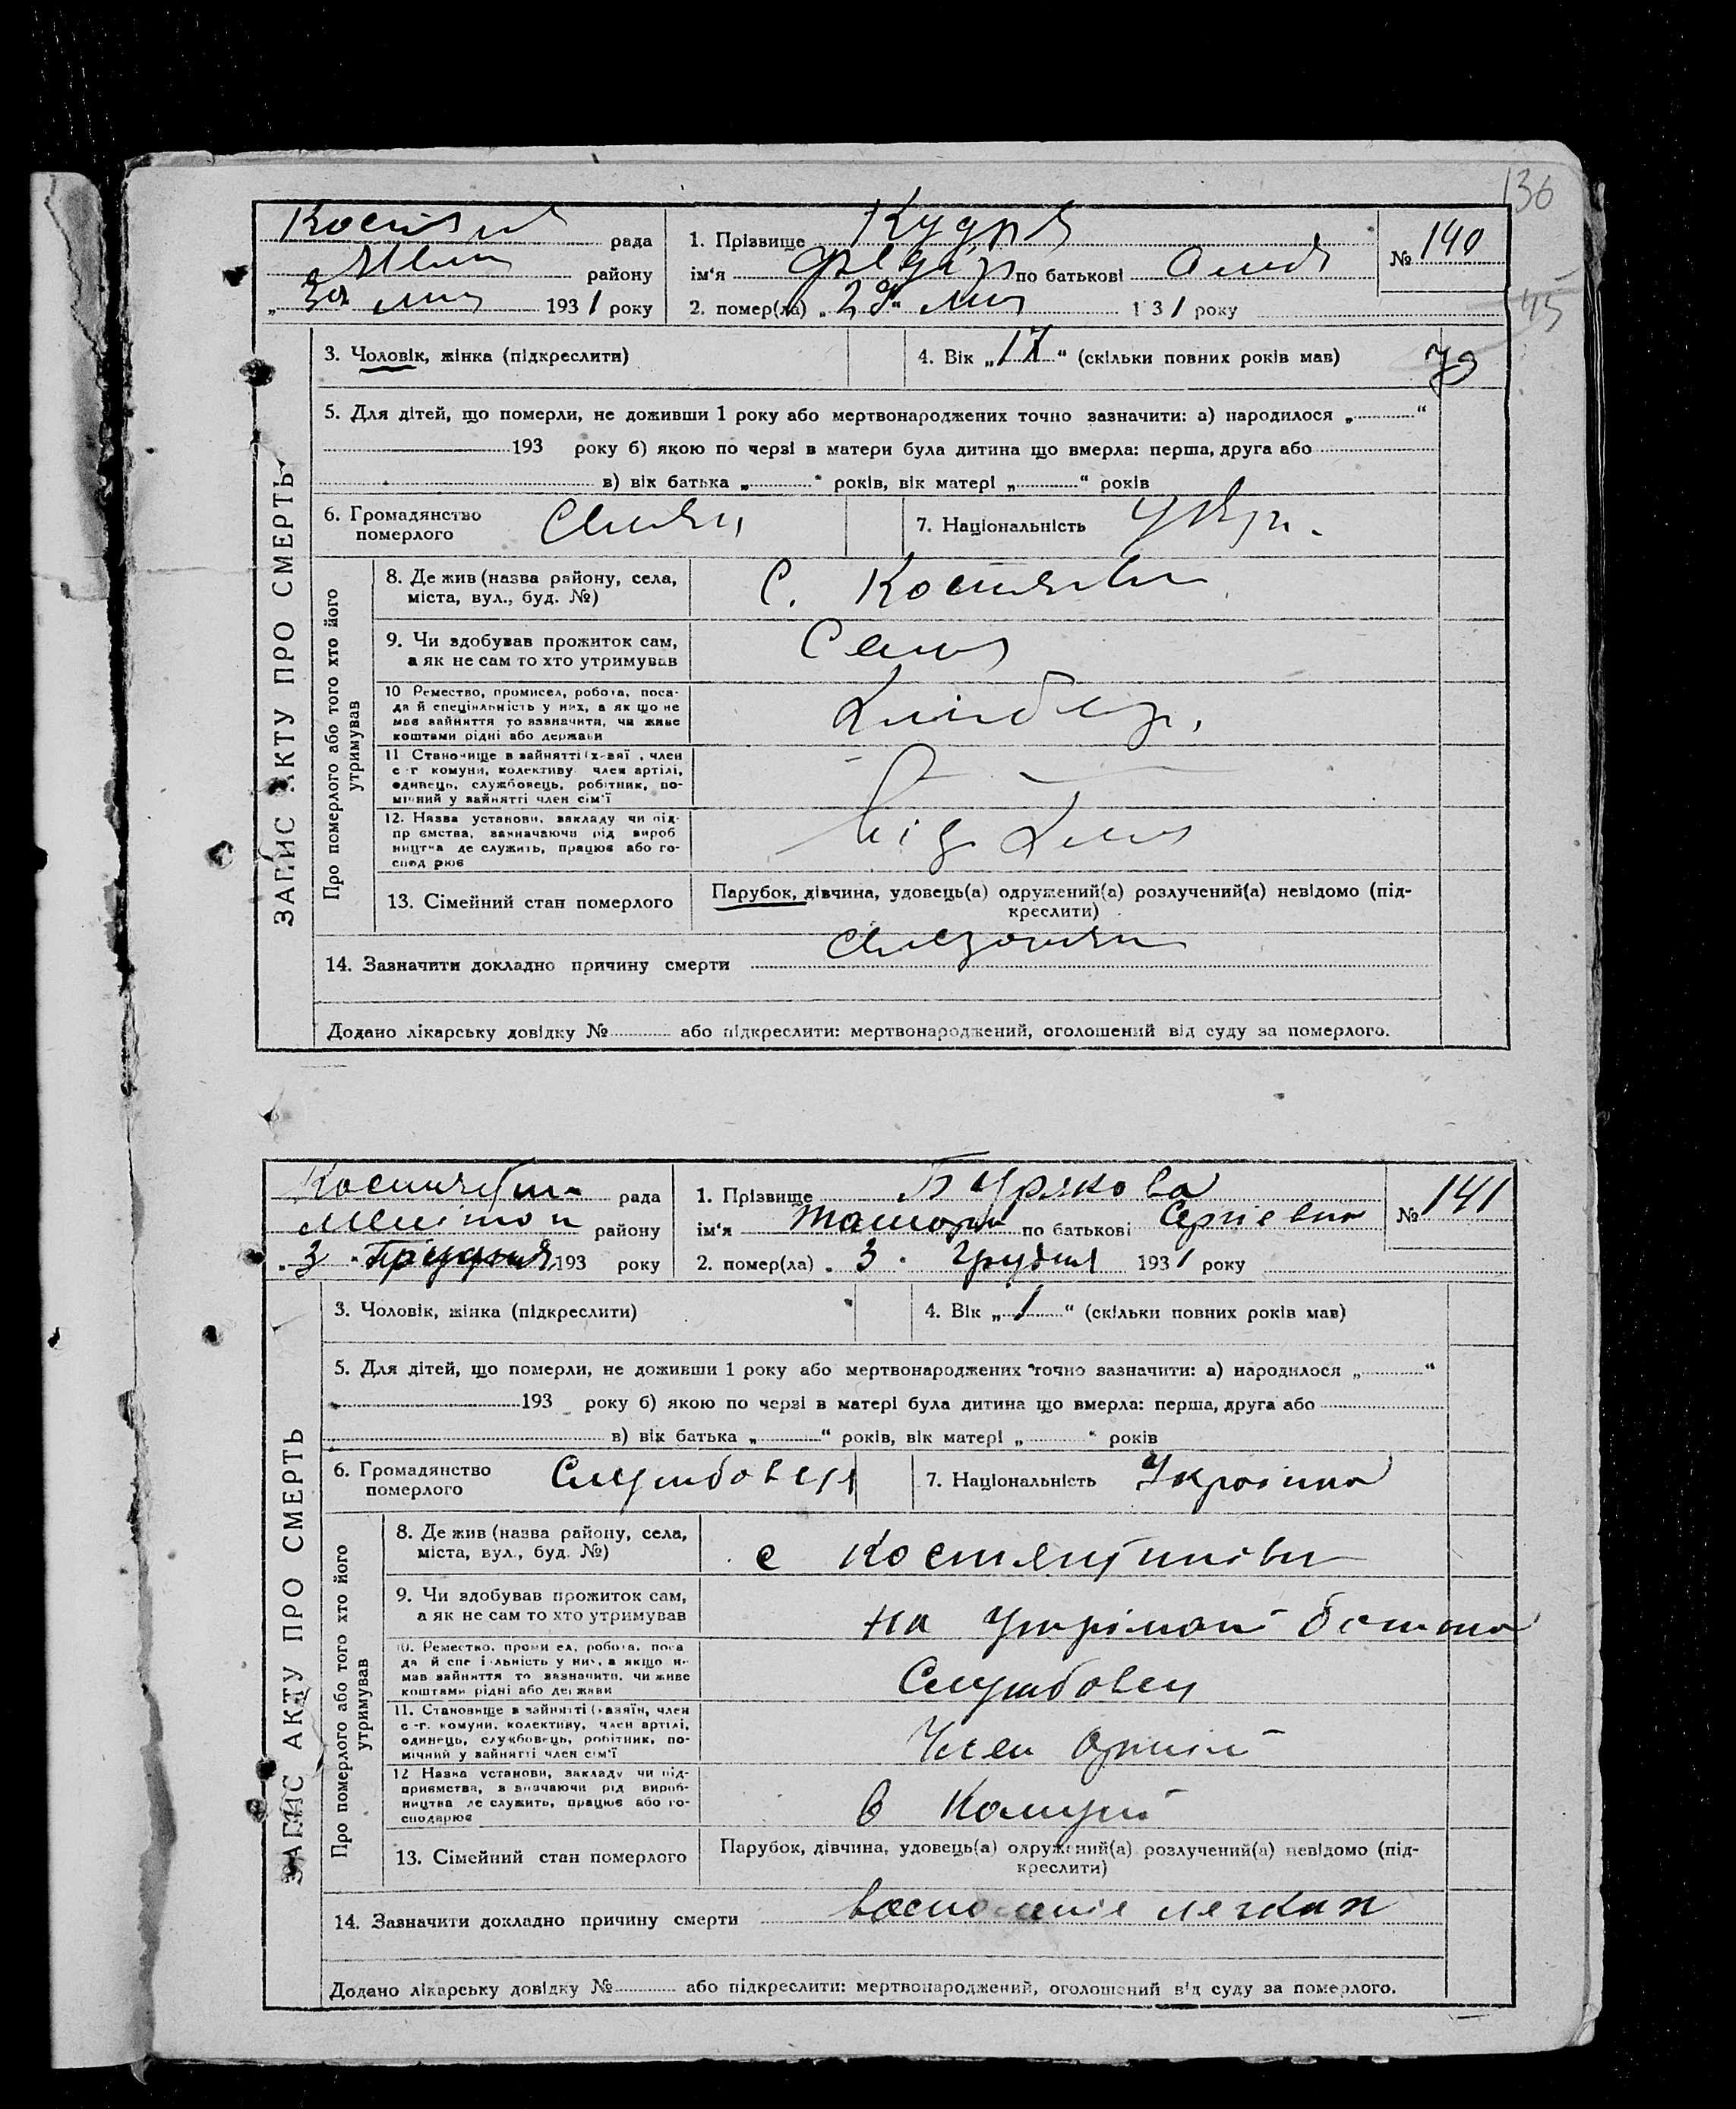 136
рада
1. Прізвище Кудря
№ 140
району
ім'я Федір по батькові
193 1 року
2. помер(ла) „ 1 3 1 року
45
3. Чоловік, жінка (підкреслити)
4. Вік „ 17 “ (скільки повних років мав)
5. Для дітей, що померли, не доживши 1 року або мертвонароджених точно зазначити: а) народилося „ “
193 року б) якою по черзі в матери була дитина що вмерла: перша, друга або
в) вік батька „ “ років, вік матері „ “ років
ЗАПИС АКТУ ПРО СМЕРТЬ
6. Громадянство
померлого
7. Національність Укр.
Про померлого або того хто його
утримував
8. Де жив (назва району, села,
міста, вул., буд. №)
с.
9. Чи здобував прожиток сам,
а як не сам то хто утримував
10 Ремество, промисел, робота, поса-
да й спеціяльність у них, а як що не
мав зайняття то зазначити, чи живе
коштами рідні або держави
11 Становище в зайнятті (х-вяї , член
с г комуни, колективу член артілі,
одинець, службовець, робітник, по-
мічний у зайнятті член сім'ї
12. Назва установи, закладу чи під-
пр ємства, зазначаючи рід вироб
ництва де служить, працює або го-
спод рює
13. Сімейний стан померлого
Парубок, дівчина, удовець(а) одружений(а) розлучений(а) невідомо (під-
креслити)
14. Зазначити докладно причину смерти
Додано лікарську довідку № або підкреслити: мертвонароджений, оголошений від суду за померлого.
рада
1. Прізвище Бурякова
№ 141
району
ім'я по батькові Сергієвна
„ 3 “ Грудня 193 року
2. помер(ла) „ 3 “ Грудня 193 1 року
3. Чоловік, жінка (підкреслити)
4. Вік „ 1 “ (скільки повних років мав)
5. Для дітей, що померли, не доживши 1 року або мертвонароджених точно зазначити: а) народилося „ “
193 року б) якою по черзі в матері була дитина що вмерла: перша, друга або
в) вік батька „ “ років, вік матері „ “ років
ЗАПИС АКТУ ПРО СМЕРТЬ
6. Громадянство
померлого
Службовця
7. Національність Україна
Про померлого або того хто його
утримував
8. Де жив (назва району, села,
міста, вул., буд. №)
с
9. Чи здобував прожиток сам,
а як не сам то хто утримував
на батька
10. Ремество, проми ел, робота, поса
да й спе і льність у них, а якщо н
мав зайняття то зазначити, чи живе
коштами рідні або держави
Службовец
11. Становище в зайнятті (хазяїн, член
с -г. комуни, колективу, член артілі,
одинець, службовець, робітник, по-
мічний у зайнятті член сім'ї
Член Артілі
12 Назва установи, закладу чи під-
приємства, з значаючи рід вироб-
ництва де служить, працює або го-
сподарює
в Комуні
13. Сімейний стан померлого
Парубок, дівчина, удовець(а) одружений(а) розлучений(а) невідомо (під-
креслити)
14. Зазначити докладно причину смерти легких
Додано лікарську довідку № або підкреслити: мертвонароджений, оголошений від суду за померлого.